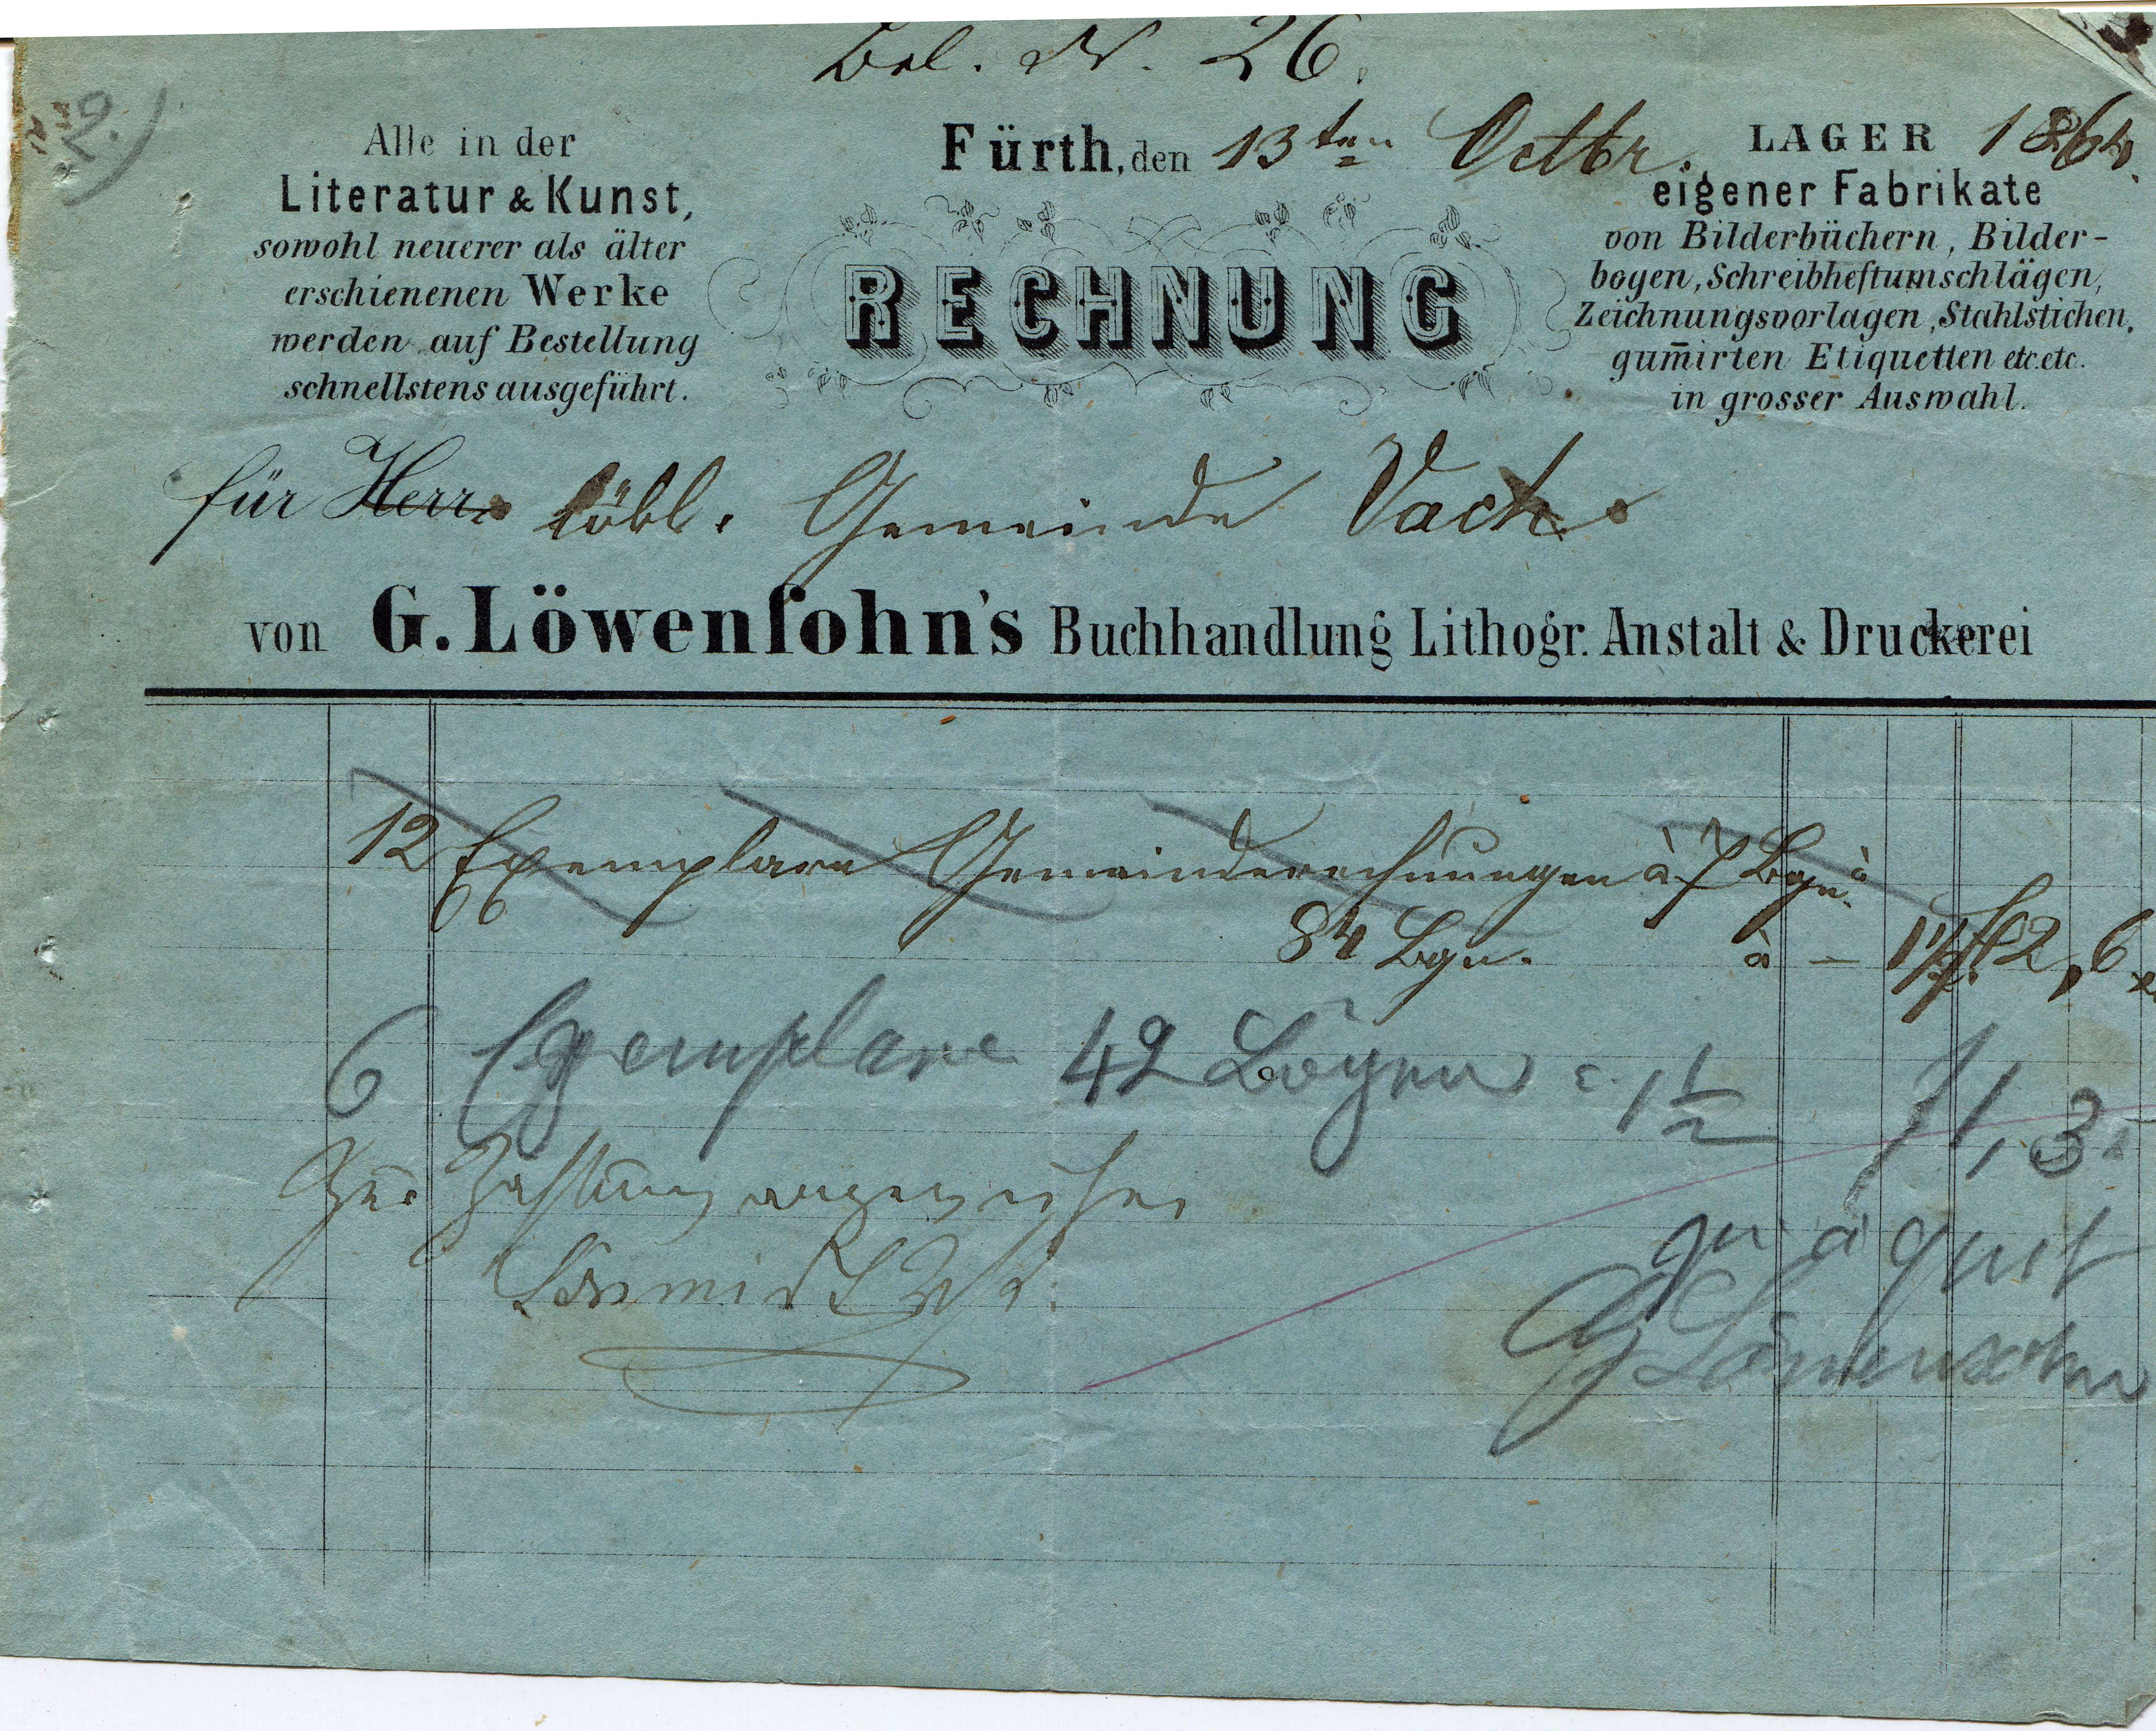 Bel. N. 26.
2.)
Fürth, den 13ten Octbr. 1864.
Alle in der
Literatur & Kunst,
sowohl neuerer als älter
erschienenen Werke
werden auf Bestellung
schnellstens ausgeführt.
RECHNUNG
LAGER
eigener Fabrikate
von Bilderbüchern, Bilder-
bogen, Schreibheftumschlägen,
Zeichnungsvorlagen, Stahlstichen,
gum̄irten Etiquetten etc. etc.
in grosser Auswahl.
für Herrn löbl. Gemeinde Vach
von G. Löwenſohn's Buchhandlung Lithogr. Anstalt & Druckerei
12 Exemplare Gemeinderechnungen à 7 Bgn. à
84 Bgn. à — 1½ f 2, 6
6 Exemplare 42 Bögen a 1½ f 1, 3
Zur Zahlung angewiesen
G Löwensohn